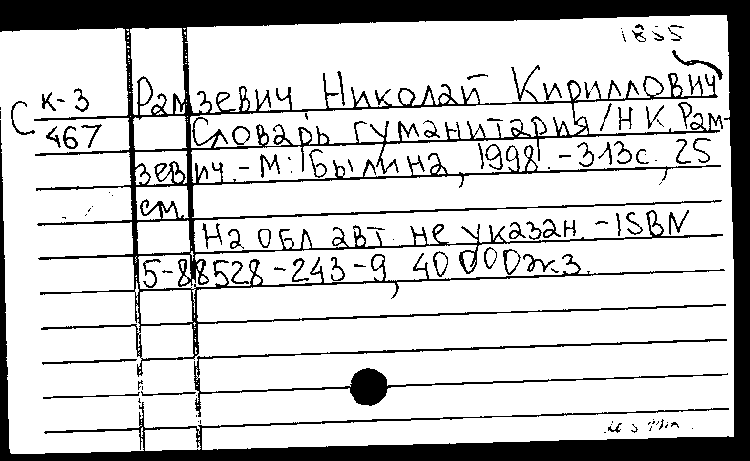 1855
С К-3 Рамзевич, Николай Кириллович
467 Словарь гуманитария/Н.К. Рам-
зевич.-М: Былина, 1998.-313с., 25
см.
На обл авт. не указан.-ISBN
5-88528-243-9, 40000экз.